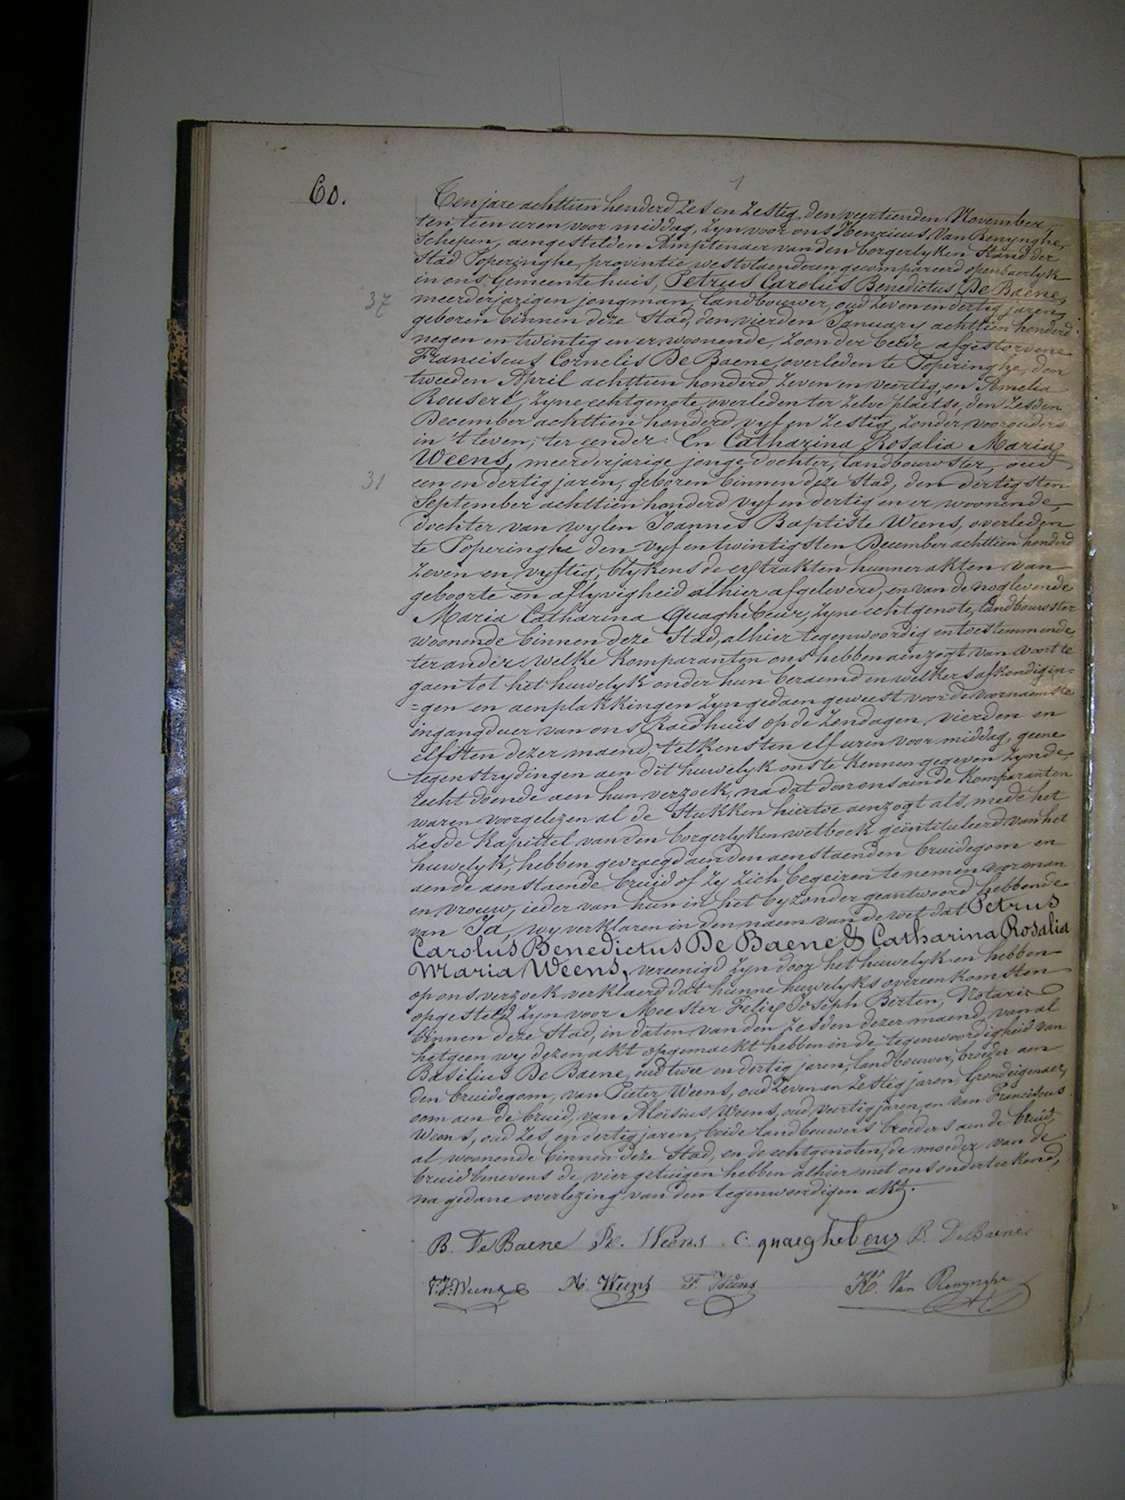 1
60.
Ten jare achttien honderd zes en zestig den veertienden November,
ten tien uren voor middag, zyn voor ons Henricus Van Renynghe,
Schepen, aengestelden Amptenaer van den borgerlyken Stand der
Stad Poperinghe, provintie westvlaenderen gecompareerd openbaerlyk
in ons Gemeentehuis, Petrus Carolus Benedictus De Baene,
37
meerderjarigen jongman, landbouwer, oud zeven en dertig jaren,
geboren binnen deze Stad, den vierden January achttien honderd
negen en twintig en er woonende, zoon der beide afgestorvene
Franciscus Cornelis De Baene, overleden te Poperinghe, den
tweeden April achttien honderd zeven en veertig, en Amelia
Rouseré, zyne echtgenote, overleden ter zelve plaetse, den zesden
December achttien honderd vyf en zestig, zonder voorouders
in 't leven, ter eender. En Catharina Rosalia Maria
Weens, meerderjarige jonge dochter, landbouwster, oud
31
een en dertig jaren, geboren binnen deze Stad, den dertigsten
September achttien honderd vyf en dertig en er woonende,
dochter van wylen Joannes Baptiste Weens, overleden
te Poperinghe den vyf en twintigsten December achttien honderd
zeven en vyftig, blykens de extrakten hunner akten van
geboorte en aflyvigheid alhier afgeleverd, en van de noglevende
Maria Catharina Quaghebeur, zyne echtgenote, landbouwster
woonende binnen deze Stad, alhier tegenwoordig en toestemmende
ter ander; welke komparanten ons hebben aenzogt van voort te
gaen tot het huwelyk onder hun beraemd en welkers afkondigin=
=gen en aenplakkingen zyn gedaen geweest voor de voornaemste
ingangdeur van ons Raedhuis op de zondagen, vierden en
elfsten dezer maend, telkens ten elf uren voor middag, geene
tegenstrydingen aen dit huwelyk ons te kennen gegeven zynde,
recht doende aen hun verzoek, na dat door ons aen de komparanten
waren voorgelezen al de Stukken hiertoe aenzogt als mede het
zesde kapittel van den borgerlyken wetboek geïntituleerd van het
huwelyk, hebben gevraegd aen den aenstaenden bruidegom en
aen de aenstaende bruid of zy zich begeiren te nemen voor man
en vrouw, ieder van hun in het byzonder geantwoord hebbende
van Ja, wy verklaren in den naem van de wet dat Petrus
Carolus Benedictus De Baene & Catharina Rosalia
Maria Weens, vereenigd zyn door het huwelyk en hebben
op ons verzoek verklaerd dat hunne huwelyks overeenkomsten
opgesteld zyn voor Meester Felix Joseph Berten, Notaris
binnen deze Stad, in daten van den zesden dezer maend, van al
hetgeen wy dezen akt opgemaekt hebben in de tegenwoordigheid van
Basilius De Baene, oud twee en dertig jaren, landbouwer, broeder aen
den bruidegom, van Pieter Weens, oud zeven en zestig jaren, Grondeigenaer,
oom aen de bruid, van Aloisius Weens, oud veertig jaren, en van Franciscus
Weens, oud zes en dertig jaren, beide landbouwers broeders aen de bruid,
al woonende binnen deze Stad, en de echtgenoten, de moeder van de
bruid benevens de vier getuigen hebben alhier met ons onderteekend,
na gedane overlezing van den tegenwoordigen akt.
B. De Baene R. Weens C. quaeghebeur B. De Baene
P. J. Weens A. Weens F. Weens H. Van Renynghe